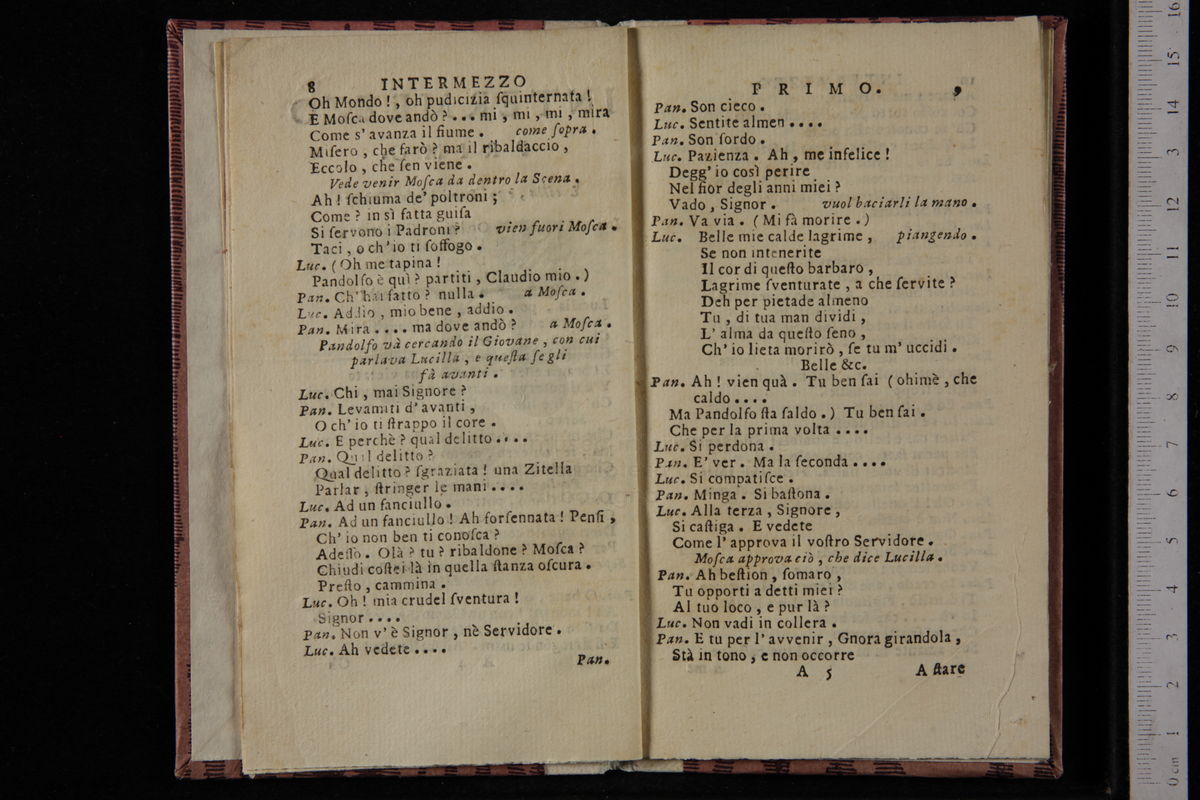 8 INTERMEZZO
Oh Mondo !, oh pudicizia ſquinternata !
E Moſca dove andò ? ... mi, mi, mi, mira
Come s' avanza il fiume . come ſopra .
Miſero , che farò ? ma il ribaldaccio ,
Eccolo , che ſen viene .
Vede venir Moſca da dentro la Scena .
Ah ! ſchiuma de' poltroni ;
Come ? in sì fatta guiſa
Si ſervono i Padroni ? vien fuori Moſca .
Taci , o ch' io ti ſoffogo .
Luc. ( Oh me tapina !
Pandolfo è quì ? partiti , Claudio mio . )
Pan. Ch' hai fatto ? nulla . a Moſca .
Luc. Addio , mio bene , addio .
Pan. Mira .... ma dove andò ? a Moſca .
Pandolfo và cercando il Giovane , con cui
parlava Lucilla , e queſta ſe gli
fà avanti .
Luc. Chi , mai Signore ?
Pan. Levamiti d' avanti ,
O ch' io ti ſtrappo il core .
Luc. E perchè ? qual delitto ....
Pan. Qual delitto ?
Qual delitto ? ſgraziata ! una Zitella
Parlar , ſtringer le mani ....
Luc. Ad un fanciullo .
Pan. Ad un fanciullo ! Ah forſennata ! Penſi ,
Ch' io non ben ti conoſca ?
Adeſſo . Olà ? tu ? ribaldone ? Moſca ?
Chiudi coſtei là in quella ſtanza oſcura .
Preſto , cammina .
Luc. Oh ! mia crudel ſventura !
Signor ....
Pan. Non v' è Signor , nè Servidore .
Luc. Ah vedete ....
Pan.
PRIMO. 9
Pan. Son cieco .
Luc. Sentite almen ....
Pan. Son ſordo .
Luc. Pazienza . Ah , me infelice !
Degg' io così perire
Nel fior degli anni miei ?
Vado , Signor . vuol baciarli la mano .
Pan. Va via . ( Mi fà morire . )
Luc. Belle mie calde lagrime , piangendo .
Se non intenerite
Il cor di queſto barbaro ,
Lagrime ſventurate , a che ſervite ?
Deh per pietade almeno
Tu , di tua man dividi ,
L' alma da queſto ſeno ,
Ch' io lieta morirò , ſe tu m' uccidi .
Belle &c.
Pan. Ah ! vien quà . Tu ben fai ( ohimè , che
caldo ....
Ma Pandolfo ſta ſaldo . ) Tu ben fai .
Che per la prima volta ....
Luc. Si perdona .
Pan. E' ver . Ma la ſeconda ....
Luc. Si compatiſce .
Pan. Minga . Si baſtona .
Luc. Alla terza , Signore ,
Si caſtiga . E vedete
Come l' approva il voſtro Servidore .
Moſca approva ciò , che dice Lucilla .
Pan. Ah beſtion , ſomaro ,
Tu opporti a detti miei ?
Al tuo loco , e pur là ?
Luc. Non vadi in collera .
Pan. E tu per l' avvenir , Gnora girandola ,
Stà in tono , e non occorre
A 5 A ſtare
0 cm 1 2 3 4 5 6 7 8 9 10 11 12 13 14 15 16